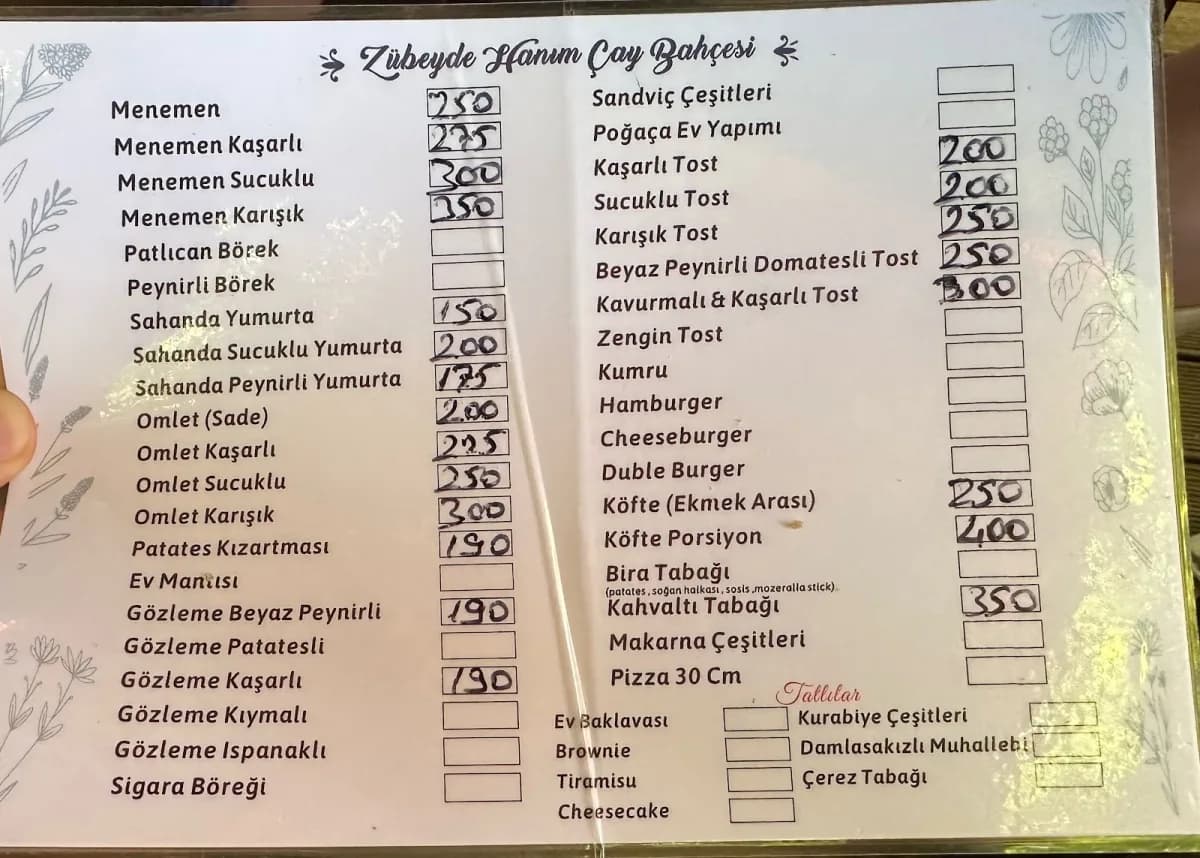 Zübeyde Hanım Çay Bahçesi
Menemen 250
Menemen Kaşarlı 275
Menemen Sucuklu 300
Menemen Karışık 350
Patlıcan Börek
Peynirli Börek
Sahanda Yumurta 150
Sahanda Sucuklu Yumurta 200
Sahanda Peynirli Yumurta 175
Omlet (Sade) 200
Omlet Kaşarlı 225
Omlet Sucuklu 250
Omlet Karışık 300
Patates Kızartması 190
Ev Mantısı
Gözleme Beyaz Peynirli 190
Gözleme Patatesli
Gözleme Kaşarlı 190
Gözleme Kıymalı
Gözleme Ispanaklı
Sigara Böreği
Sandviç Çeşitleri
Poğaça Ev Yapımı
Kaşarlı Tost 200
Sucuklu Tost 200
Karışık Tost 250
Beyaz Peynirli Domatesli Tost 250
Kavurmalı & Kaşarlı Tost 300
Zengin Tost
Kumru
Hamburger
Cheeseburger
Duble Burger
Köfte (Ekmek Arası) 250
Köfte Porsiyon 400
Bira Tabağı
(patates, soğan halkası, sosis, mozeralla stick)
Kahvaltı Tabağı 350
Makarna Çeşitleri
Pizza 30 Cm
Tatlılar
Ev Baklavası
Brownie
Tiramisu
Cheesecake
Kurabiye Çeşitleri
Damlasakızlı Muhallebi
Çerez Tabağı